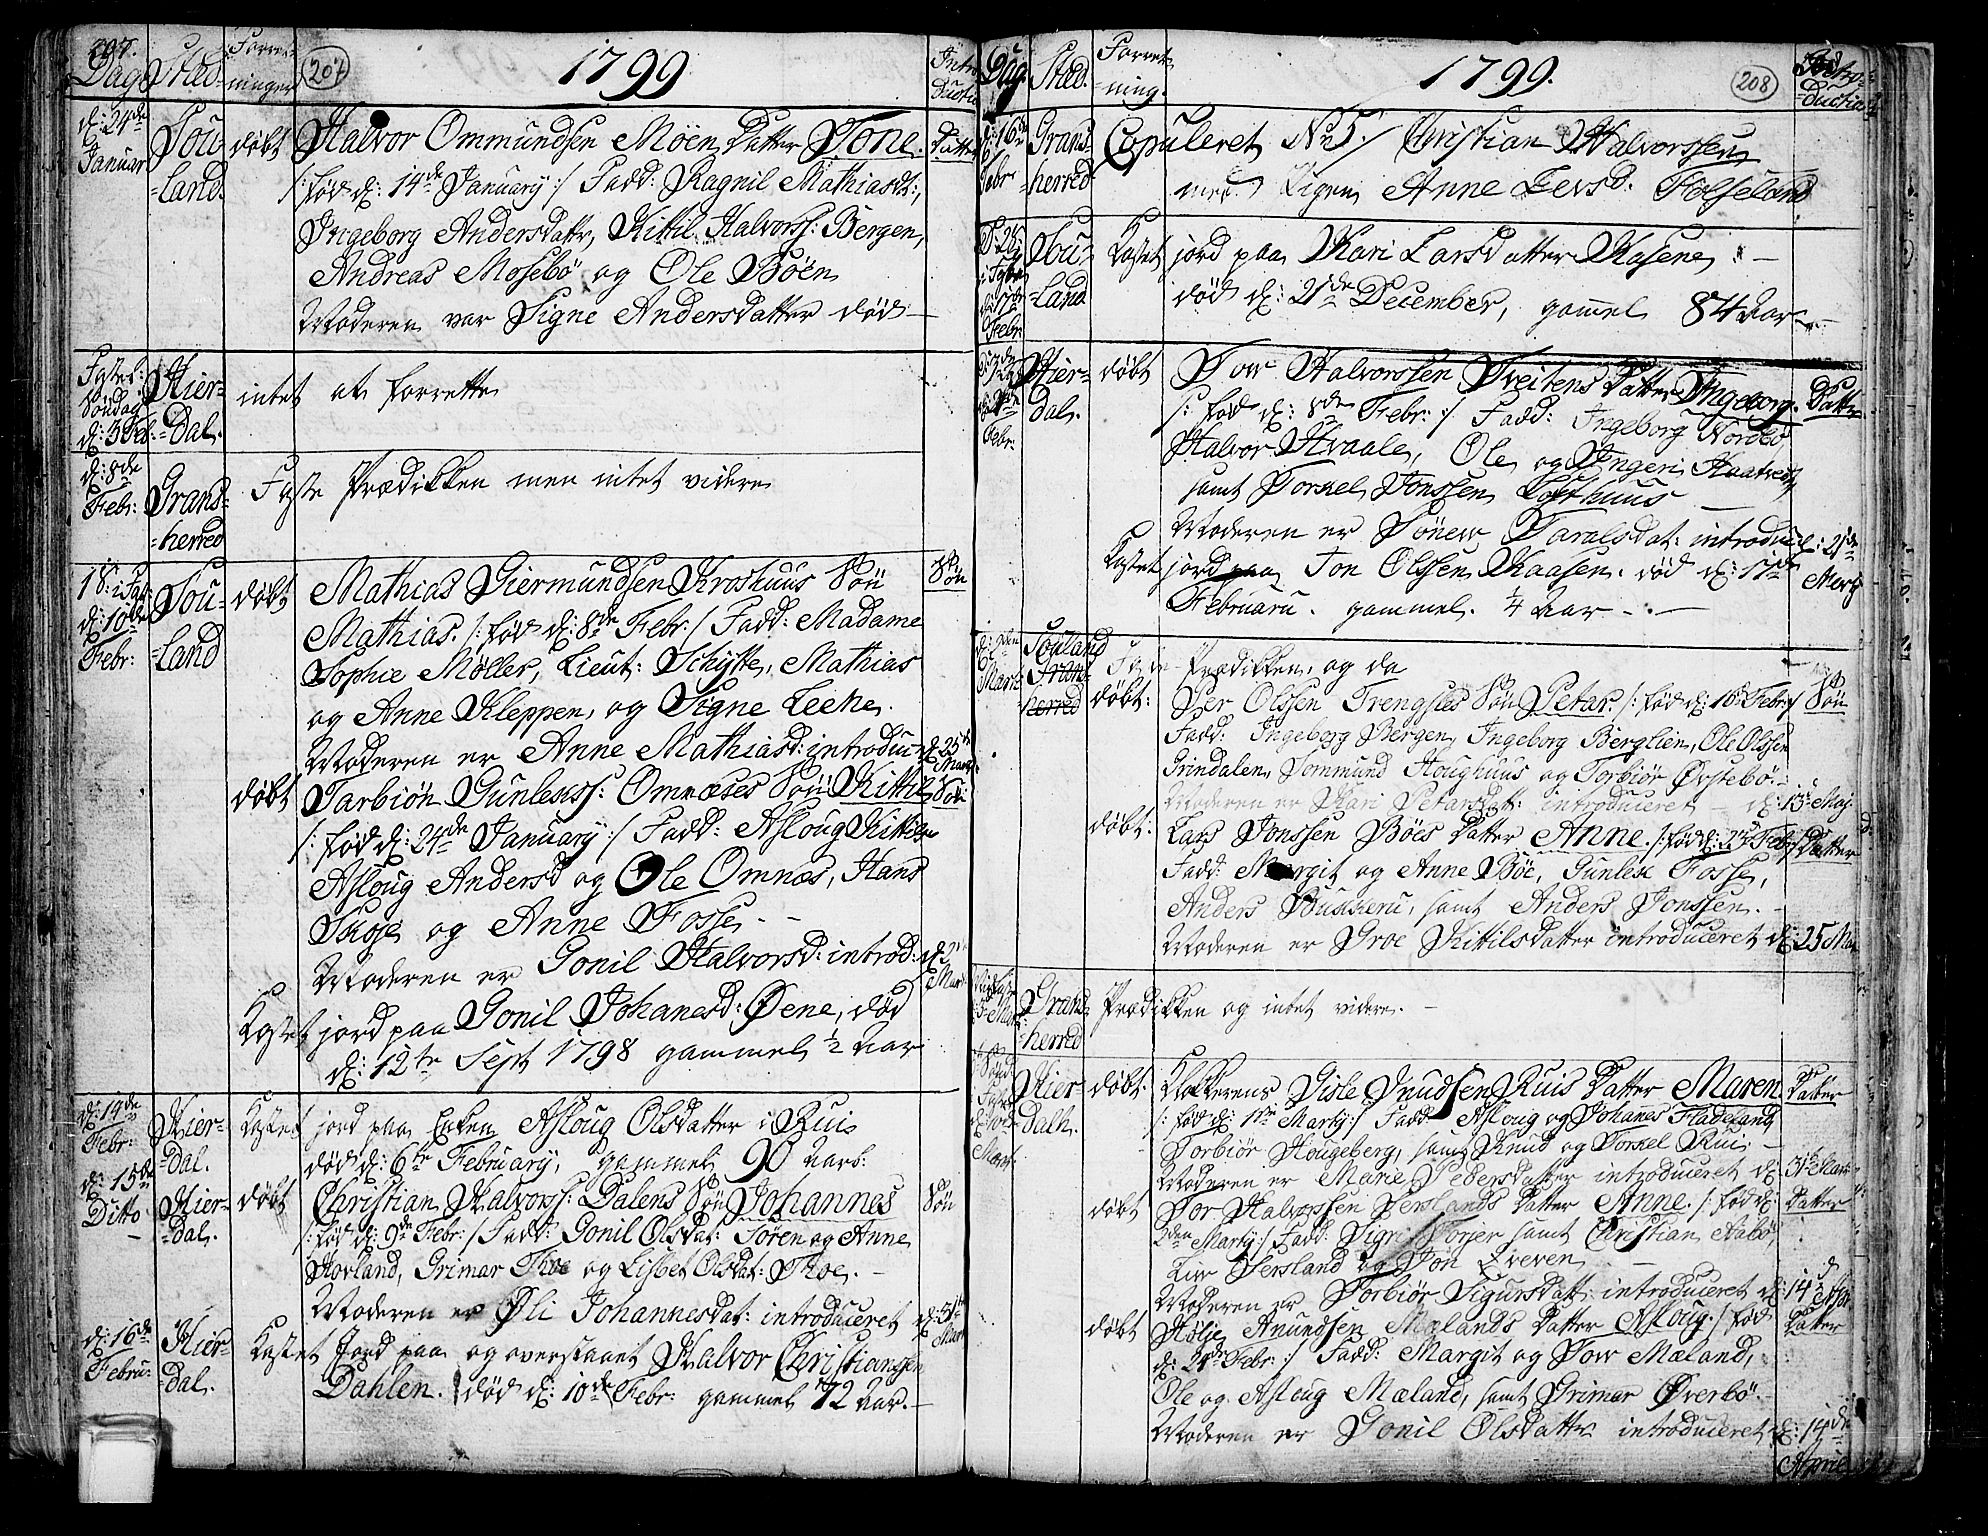 207.
Dag Sted Forret-
ninger 207 1799 Intro
ductio
d: 24de
Januar Sou
=land. døbt Halvor Ommundsen Moen Datter Tone. Datter
/: fød d: 14de January :/ Fadd: Ragnil Mathiasdt:,
Ingeborg Andersdattr, Kittil Halvorss: Bergen,
Andreas Mosebö og Ole Böen
Moderen var Signe Andersdatter død
Fastel:
Søndag
d: 3 Feb: Hier-
=dal. intet at forrette
d: 8de
Febr: Grans-
=herred Faste Prædikken men intet videre
1 S: i Fast:
d: 10de
Febr: Sou-
=land døbt Mathias Giermundsen Kroshuus Søn Søn
Mathias. /: fød d: 8de Febr: / Fadd: Madame
Sophie Møller, Lieut: Schytte, Mathias
og Anne Kleppen, og Signe Leeke.
Moderen er Anne Mathiasd: introduc: d: 25de
Mart:
døbt Tarbiön Gunlekss: Omnæses Søn Kittil Søn
/: fød d: 24de January :/ Fadd: Asloug Kittils
Asloug Andersd og Ole Omnæs, Hans
Skoje og Anne Fosse. -
Moderen er Gonil Halvorsd: introd: d:
Mart
Kastet jord paa Gonil Johanesd: Øene, død
d: 12te Sept 1798 gammel 1/2 Aar
d: 14de
Febr: Hier-
=dal. Kastet jord paa Enken Asloug Olsdatter i Ruis
død d: 6te February, gammel 90 Aar:
d: 15de
Ditto Hier-
=dal. døbt Christian Halvorss: Dalens Søn Johannes Søn
/: fød d: 9de Febr: / Fadd: Gonil Olsdat: Søren og Anne
Hovland, Grimar Skoe og Lisbet Olsdat: Skoe. -
Moderen er Øli Johannesdat: introduceret d: 31te
Mart
d: 16de
Febru: Hier-
dal. Kastet Jord paa og overstaaet Halvor Christiansen
Dahlen. død d: 10de Febr: gammel 72 Aar. -
Dag Sted. Forret-
-ning. 1799. 208 Intro-
ductio
d: 16de
Febr: Grans-
=herred Copuleret No 5 / Christian Halvorssen
med Pigen Anne Levsd. Folseland
2 S:
i Faste
d: 17de
Febr: Sou-
=land Kastet jord paa Kari Larsdatter Kasene -
død d: 21de December, gammel 84 Aar. -
Febr: Hier-
dal. døbt Tov Halvorssen Tveitens Datter Ingeborg. Datter
/: fød d: 8de Febr: :/ Fadd: Ingeborg Nordbö
Halvor Hvaale, Ole og Ingeri Haatvedt,
samt Torkel Jonssen Lofthuus
Moderen er Sönew Taralsdat: introduc: d: 21de
Marty
Kastet jord paa Jon Olssen Kaasen. død d: 11te
Februaru. gammel. 1/4 Aar -
Mart: Souland
Grans-
herred Faste- Prædikken, og da
døbt: Per Olssen Trengsles Søn Petar. /: fød d: 18 Febr:/ Søn
Fadd: Ingeborg Bergen, Ingeborg Berglien, Ole Olssen
Grindalen, Sommund Houghuus og Torbiør Ørstebö. -
Moderen er Kari Petarsdat: introduceret - d: 13 Maj.
døbt: Lars Jonssen Böes Datter Anne. /: fød d: 24 Febr:/ Datter
Fadd: Margit og Anne Böe, Gunlek Fosse,
Anders Bukkeru, samt Anders Jonssen. -
Moderen er Groe Kittilsdatter introduceret d: 25 Mar
Mart: Grans-
herred Prædikken og intet videre. -
Mart. Hier-
dalh. døbt. Klokkerens Gisle Knudsen Ruis Datter Maren. Datter
/: fød d: 1ste Marty :/ Fadd: Asloug og Johanes Fladeland,
Torbiør Hougeberg, samt Knud og Torkel Rui. -
Moderen er Marie Pedersdatter introduceret d: 31te Mart
døbt Tor Halvorssen Perslands Datter Anne. /: fød d: Datter
2den Marty :/ Fadd: Sigri Torjer samt Christian Aabö,
Liv Persland og Jon Lveven
Moderen er Torbiør Sigursdattr introduceret d: 14d Apr
døbt Hølje Anundsen Mælands Datter Asloug. /: fød Datter
d: 24de Febr: :/ Fadd: Margit og Tov Mæland,
Ole og Asloug Mæland, samt Grimar Överbö. -
Moderen er Gonil Olsdattr introduceret d: 14de
April